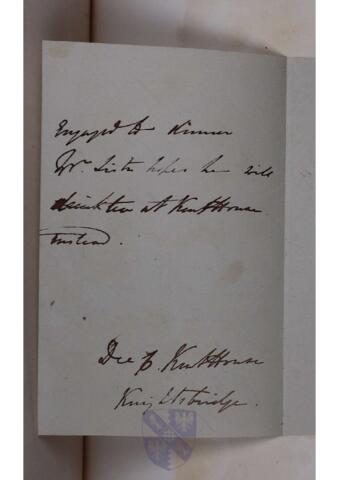 Engaged to dinner
Mr. Lister hopes he will
drink tea at Kent House
instead.
Dec 6. Kent House
Knightsbridge.